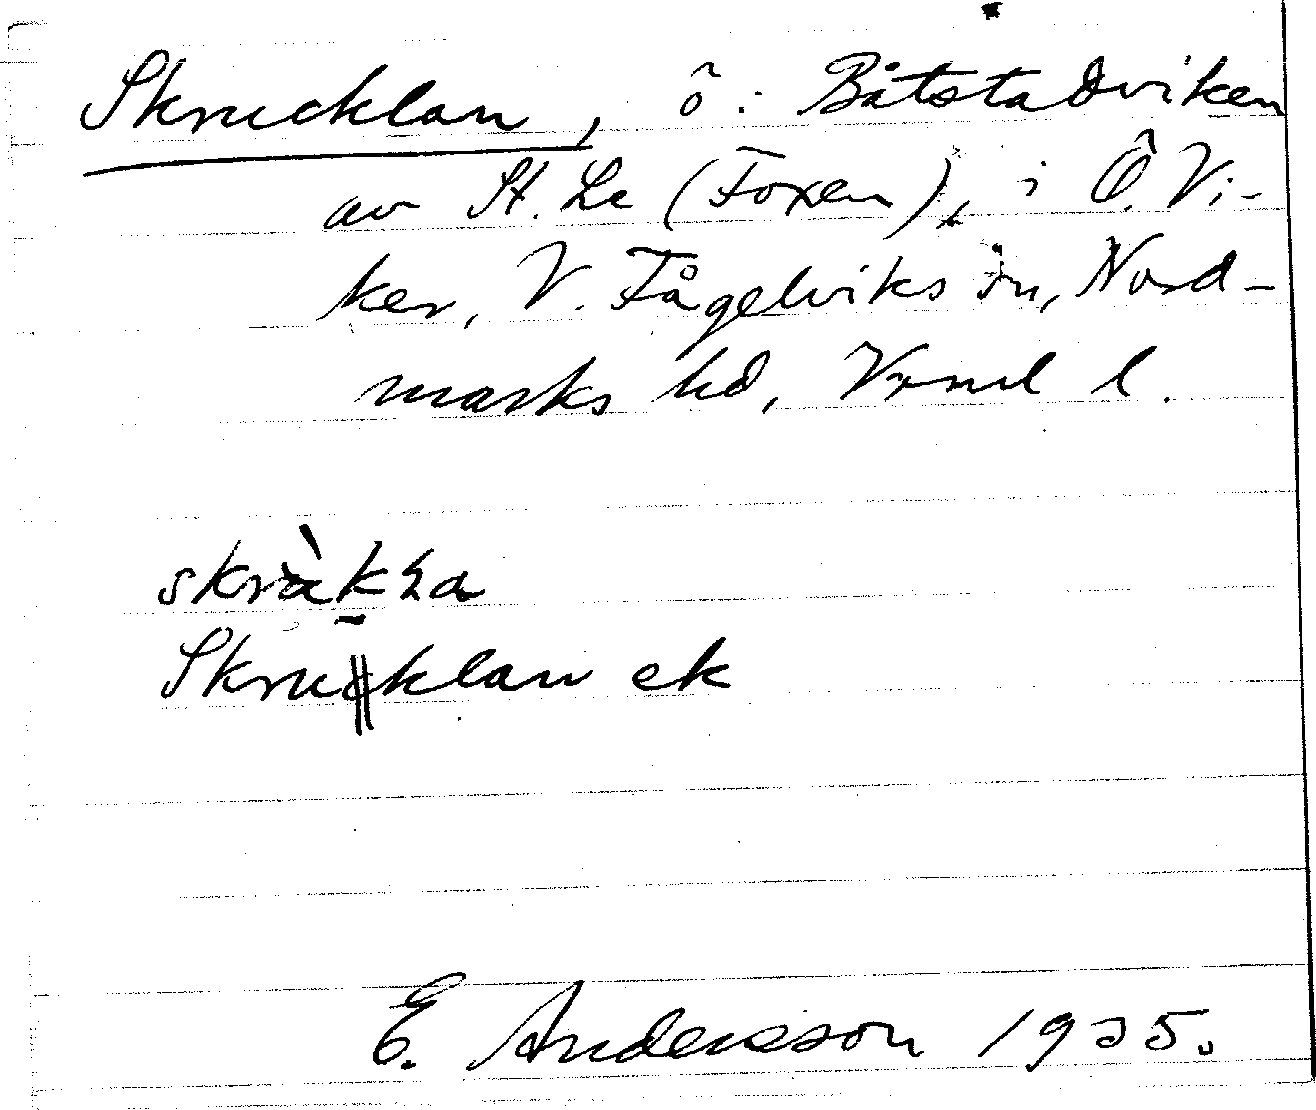 Skrucklan, ö: Båtstadviken
av St. Le (Foxen), i Ö. Vi-
ker, V. Fågelviks sn, Nord-
marks hd, Vrml l.
Skrucklan ek
E. Andersson 1935.